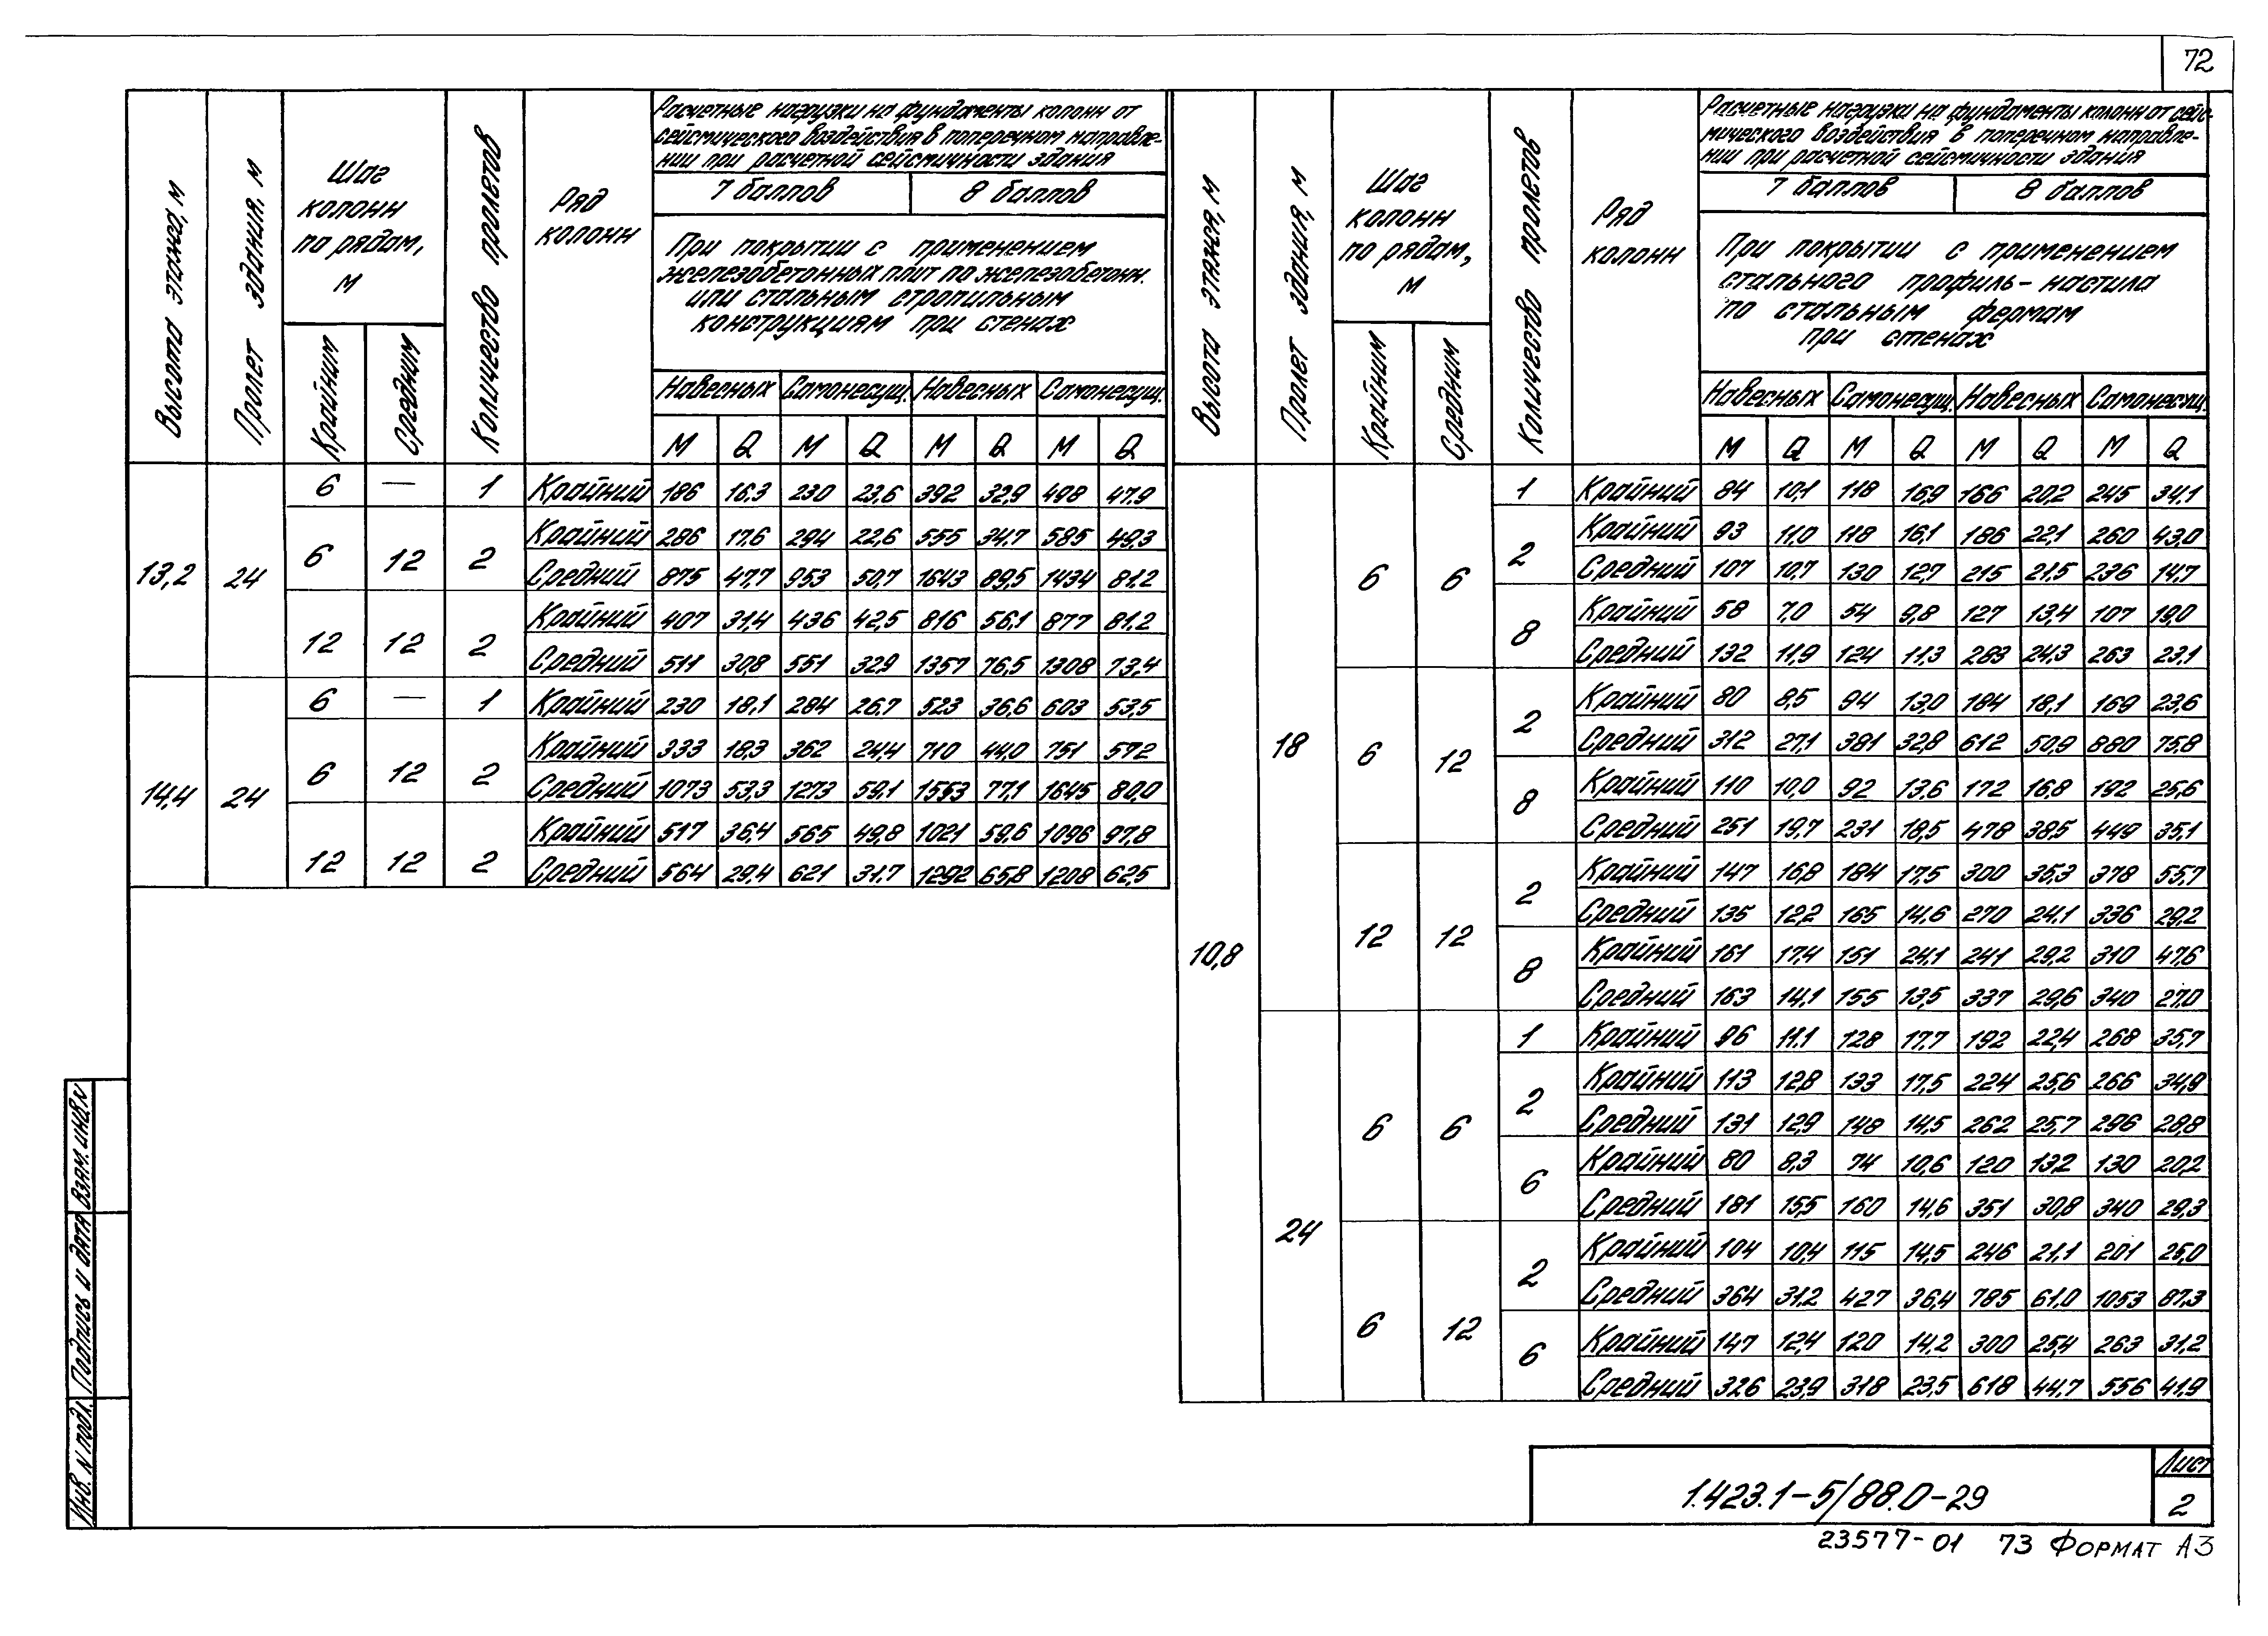 72
Высота этажа, м
Пролет здания, м
Шаг колонн по рядам, м
Крайним
Средним
Количество пролетов
Ряд колонн
Расчетные нагрузки на фундаменты колонн от
сейсмического воздействия в поперечном направле-
нии при расчетной сейсмичности здания
7 баллов 8 баллов
При покрытии с применением
железобетонных плит по железобетонн.
или стальным стропильным
конструкциям при стенах
Навесных Самонесущ. Навесных Самонесущ.
М Q М Q М Q М Q
13,2 24
6 — 1 Крайний 186 16,3 230 23,6 392 32,9 498 47,9
6 12 2 Крайний 286 17,6 294 22,6 555 34,7 585 49,3
Средний 875 47,7 953 50,7 1643 89,5 1434 81,2
12 12 2 Крайний 407 31,4 436 42,5 816 56,1 877 81,2
Средний 511 30,8 551 32,9 1357 76,5 1308 73,4
14,4 24
6 — 1 Крайний 230 18,1 284 26,7 523 36,6 603 53,5
6 12 2 Крайний 333 18,3 362 24,4 710 44,0 751 57,2
Средний 1073 53,3 1273 59,1 1553 77,1 1645 80,0
12 12 2 Крайний 517 36,4 565 49,8 1021 59,6 1096 97,8
Средний 564 29,4 621 31,7 1292 65,8 1208 62,5
Высота этажа, м
Пролет здания, м
Шаг колонн по рядам, м
Крайним
Средним
Количество пролетов
Ряд колонн
Расчетные нагрузки на фундаменты колонн от сейс-
мического воздействия в поперечном направле-
нии при расчетной сейсмичности здания
7 баллов 8 баллов
При покрытии с применением
стального профиль-настила
по стальным фермам
при стенах
Навесных Самонесущ. Навесных Самонесущ.
М Q М Q М Q М Q
10,8
18
6 6
1 Крайний 84 10,1 118 16,9 166 20,2 245 34,1
2 Крайний 93 11,0 118 16,1 186 22,1 260 43,0
Средний 107 10,7 130 12,7 215 21,5 236 14,7
8 Крайний 58 7,0 54 9,8 127 13,4 107 19,0
Средний 132 11,9 124 11,3 283 24,3 263 23,1
6 12
2 Крайний 80 8,5 94 13,0 184 18,1 169 23,6
Средний 312 27,1 381 32,8 612 50,9 880 75,8
8 Крайний 110 10,0 92 13,6 172 16,8 192 25,6
Средний 251 19,7 231 18,5 478 38,5 449 35,1
12 12
2 Крайний 147 16,8 184 17,5 300 35,3 378 55,7
Средний 135 12,2 165 14,6 270 24,1 336 29,2
8 Крайний 161 17,4 151 24,1 241 29,2 310 47,6
Средний 163 14,1 155 13,5 337 29,6 340 27,0
24
6 6
1 Крайний 96 11,1 128 17,7 192 22,4 268 35,7
2 Крайний 113 12,8 133 17,5 224 25,6 266 34,9
Средний 131 12,9 148 14,5 262 25,7 296 28,8
6 Крайний 80 8,3 74 10,6 120 13,2 130 20,2
Средний 181 15,5 160 14,6 351 30,8 340 29,3
6 12
2 Крайний 104 10,4 115 14,5 246 21,1 201 25,0
Средний 364 31,2 427 36,4 785 61,0 1053 87,3
6 Крайний 147 12,4 120 14,2 300 25,4 263 31,2
Средний 326 23,9 318 23,5 618 44,7 556 41,9
Взам. инв. N
Подпись и дата
Инв. N подл.
1.423.1-5/88.0-29
Лист
2
23577-01 73 Формат А3